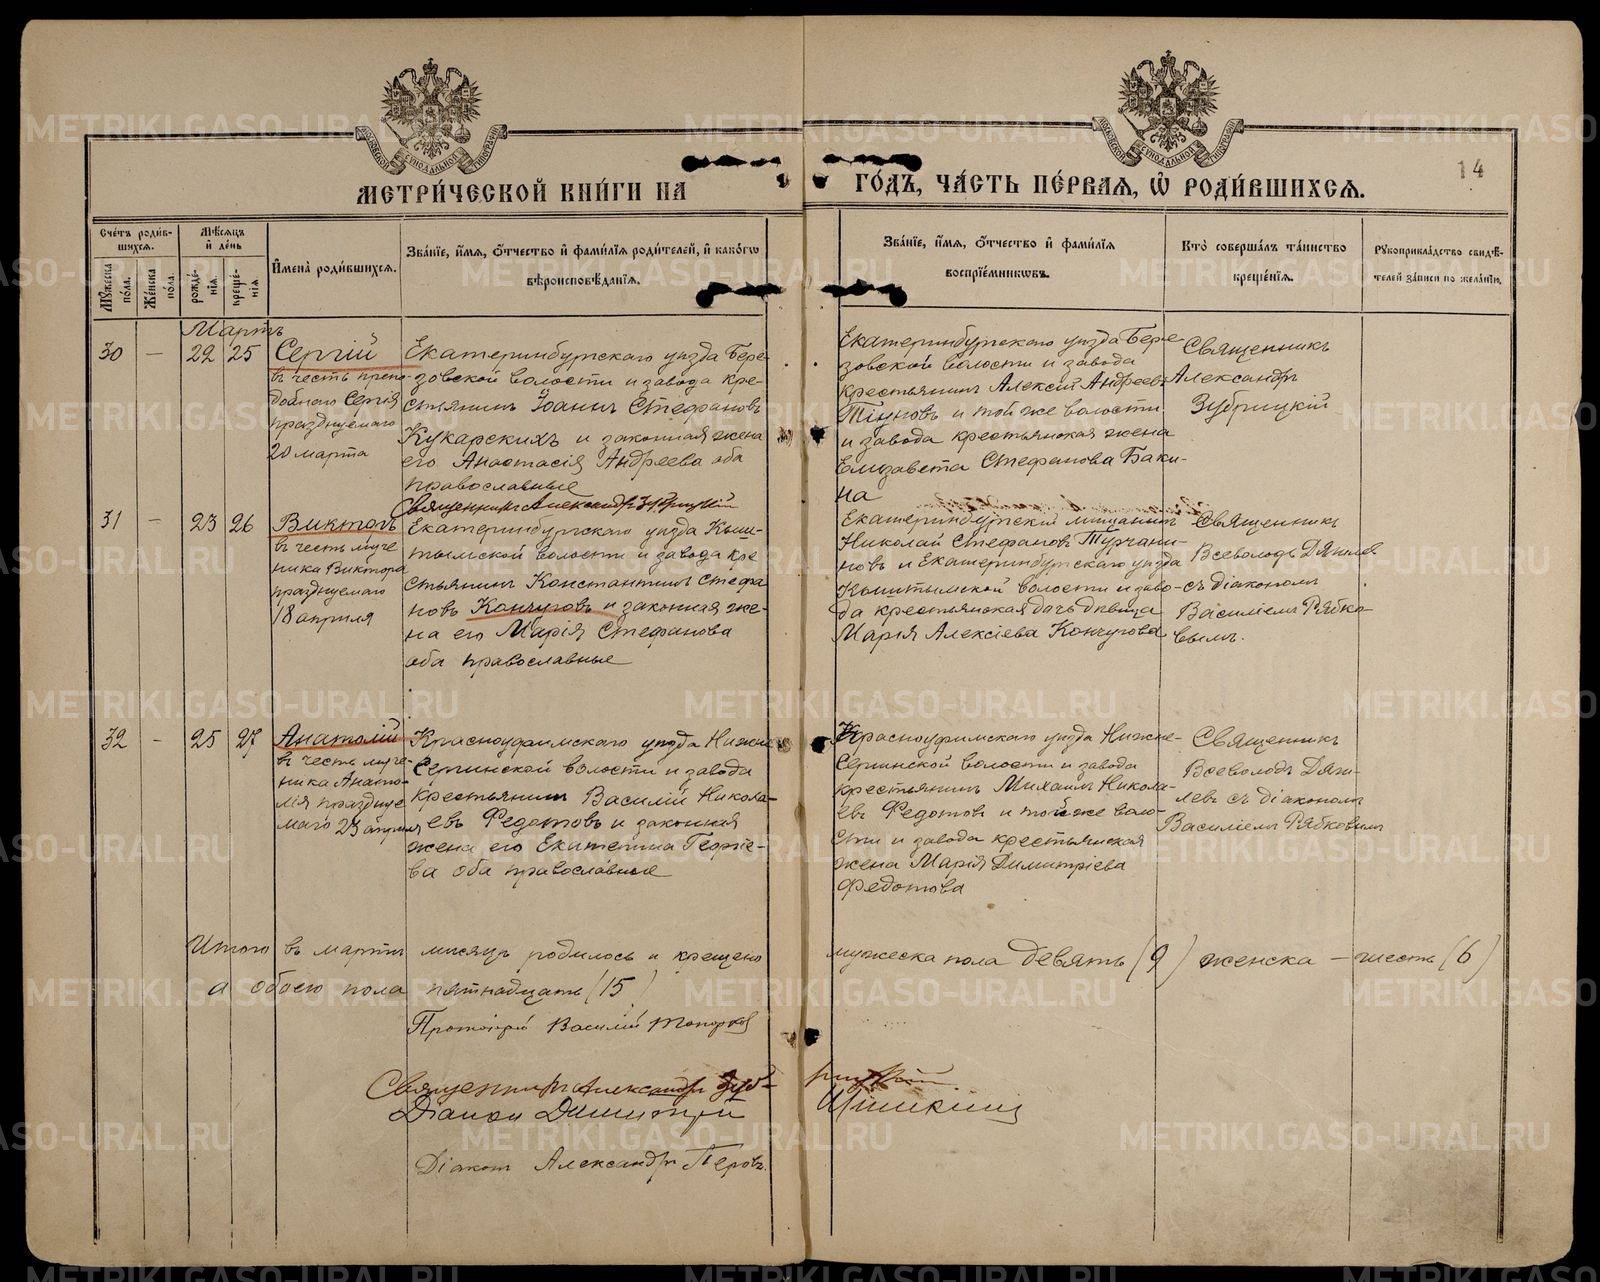 МЕТРИ́ЧЕСКОЙ КНИ́ГИ НА
ГО́ДЪ, ЧА́СТЬ ПЕ́РВАѦ, Ѡ҆ РОДИ́ВШИХСѦ.
14
Сче́тъ роди́в-
шихсѧ.
Мꙋ́жеска по́ла.
Же́нска по́ла.
Мѣ́сѧцъ
и҆ де́нь
рожде́-
нїѧ.
креще́-
нїѧ
И҆мена̀ роди́вшихсѧ.
Зва́нїе, и҆́мѧ, ѻ҆́тчество и҆ фами́лїѧ роди́телей, и҆ како́гѡ
вѣроисповѣ́данїѧ.
Зва́нїе, и҆́мѧ, ѻ҆́тчество и҆ фами́лїѧ
воспрїе́мникѡвъ.
Кто̀ соверша́лъ та́инство
креще́нїѧ.
Рꙋкоприкла́дство свидѣ́-
телей за́писи по жела́нїю.
Мартъ
30 — 22 25
Сергій
въ честь препо-
добнаго Сергія
празднуемаго
20 марта
Екатеринбургскаго уѣзда Бере-
зовской волости и завода кре-
стьянинъ Іоаннъ Стефановъ
Кукарскихъ и законная жена
его Анастасія Андреева оба
православные
Священникъ Александръ Зубрицкій
Екатеринбургскаго уѣзда Бере-
зовской волости и завода
крестьянинъ Алексій Андреевъ
Тіуновъ и той же волости
и завода крестьянская жена
Елизавета Стефанова Баки-
на
Священникъ
Александръ
Зубрицкій
31 — 23 26
Викторъ
въ честь муче
ника Виктора
празднуемаго
18 апрѣля
Екатеринбургскаго уѣзда Кыш-
тымской волости и завода кре
стьянинъ Константинъ Стефа
новъ Кончуговъ и законная же-
на его Марія Стефанова
оба православные
Екатеринбургскій мѣщанинъ
Николай Стефановъ Турчани-
новъ и Екатеринбургскаго уѣзда
Кыштымской волости и заво-
да крестьянская дочь дѣвица
Марія Алексіева Кончугова
Священникъ
Всеволодъ Дягилев
съ діакономъ
Василіемъ Рябко-
вымъ.
32 — 25 27
Анатолій
въ честь муче-
ника Анато-
лія празднуе
маго 23 апрѣля
Красноуфимскаго уѣзда Нижне
Сергинской волости и завода
крестьянинъ Василій Никола-
евъ Федотовъ и законная
жена его Екатерина Георгіе-
ва оба православные
Красноуфимскаго уѣзда Нижне-
Сергинской волости и завода
крестьянинъ Михаилъ Никола-
евъ Федотовъ и той же воло-
сти и завода крестьянская
жена Марія Димитріева
Федотова
Священникъ
Всеволодъ Дяги-
левъ съ діакономъ
Василіемъ Рябковымъ
Итого въ мартѣ мѣсяцѣ родилось и крещено мужеска пола девять (9) женска — шесть (6)
а обоего пола пятнадцать (15)
Протоіерей Василій Топорков
Священникъ Александръ Зуб-
рицкій
Діакон Димитрій
Шишкин
Діаконъ Александръ Перовъ.
METRIKI.GASO-URAL.RU